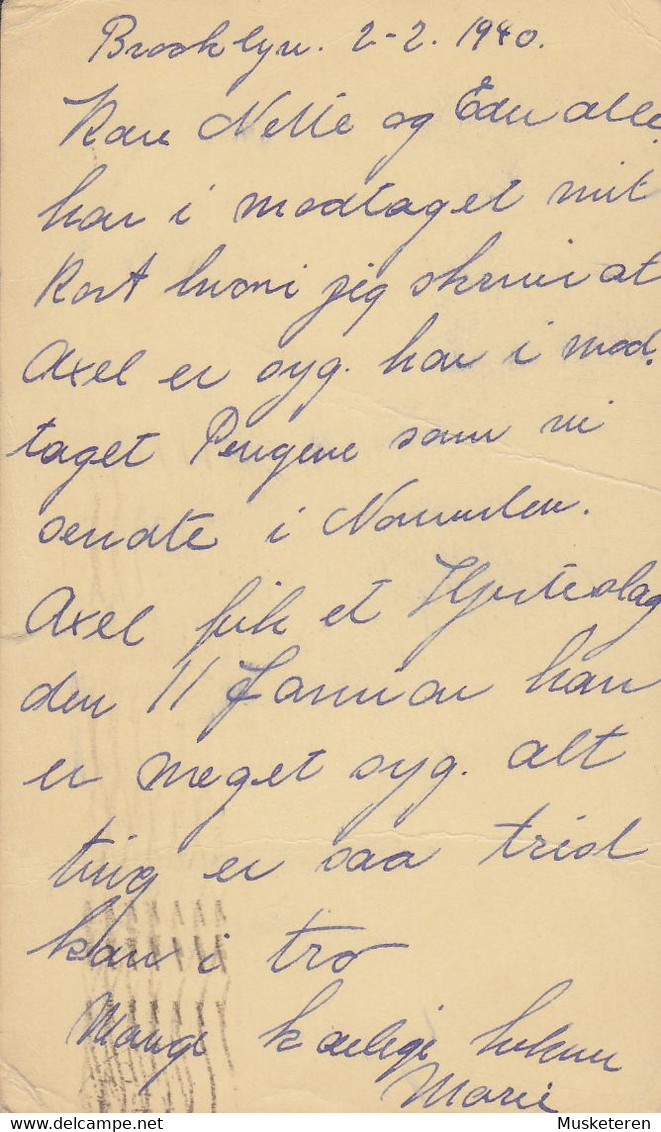 Brooklyn. 2-2. 1940.
Kære Nellie og Eder alle.
har i modtaget mit
Kort hvori jeg skriver at
Axel er syg. har i mod-
taget Pengene som vi
sendte i November.
Axel fik et Hjerteslag
den 11 Januar han
er meget syg. alt
ting er saa trist
kan i tro
Mange kærlige hilsener
Marie
Musketeren